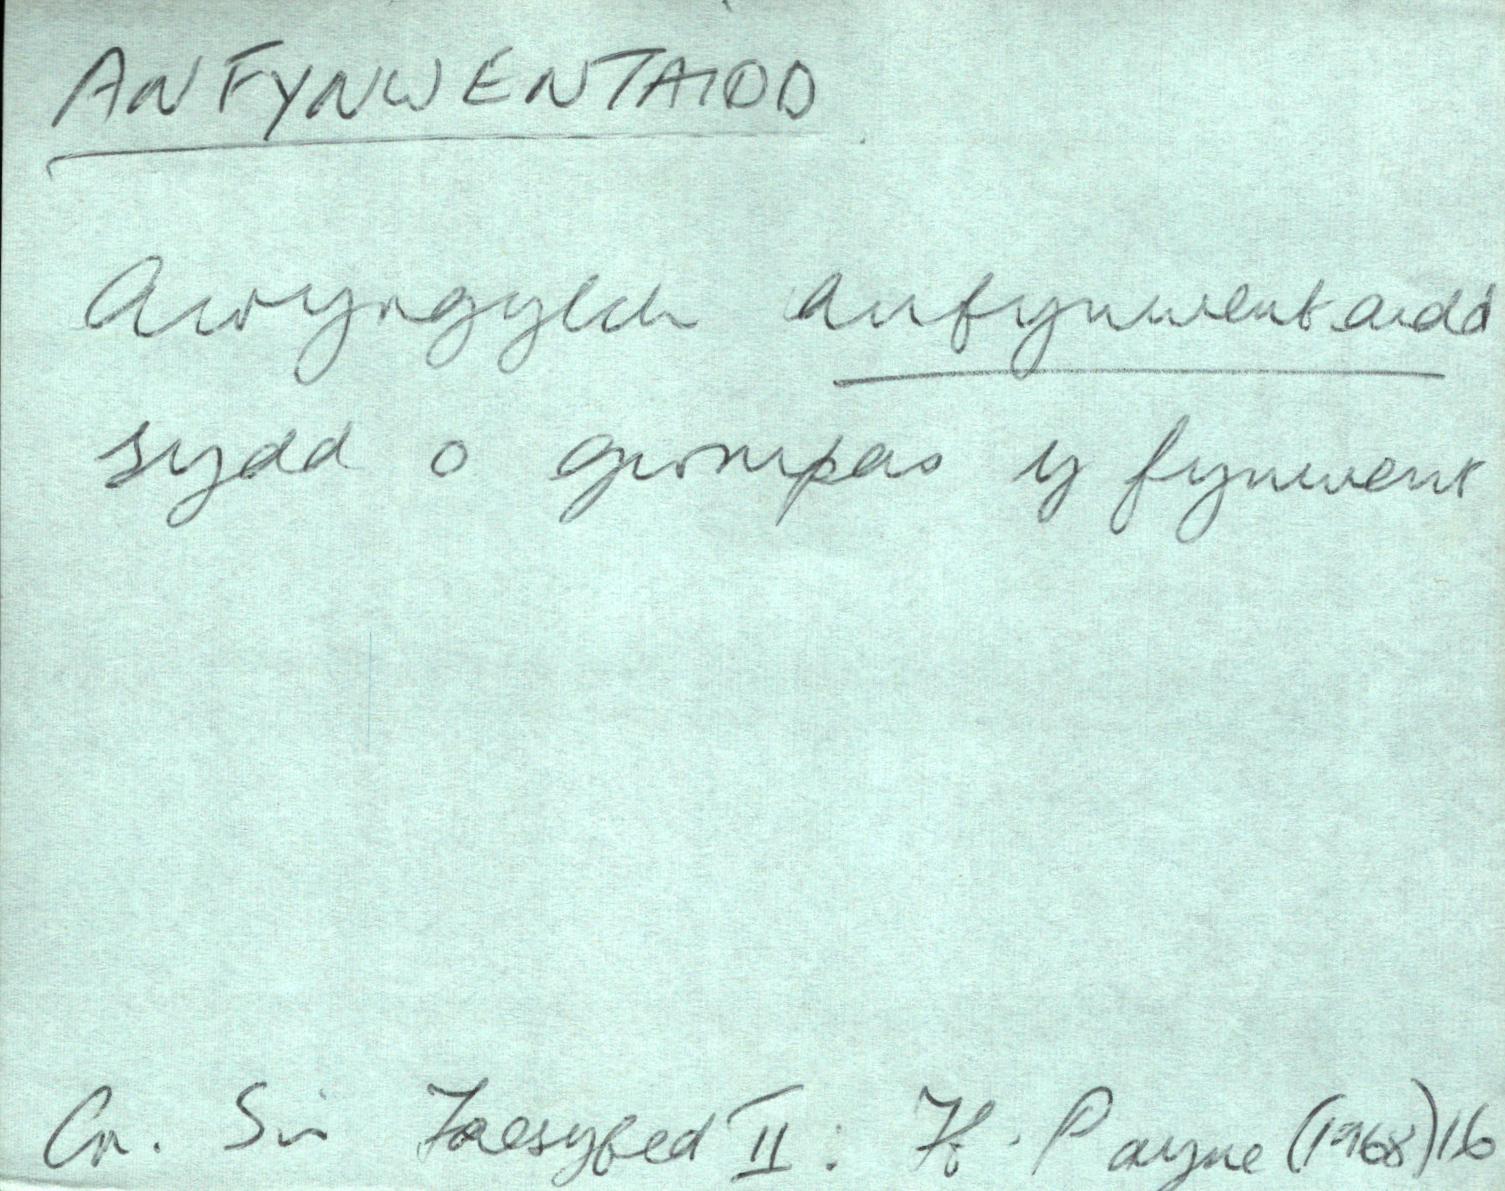 ANFYNWENTAIDD
Awyrgylch anfynwentaidd
sydd o gwmpas y fynwent
Cr. Sir Faesyfed II : Ff. Payne (1968) 16